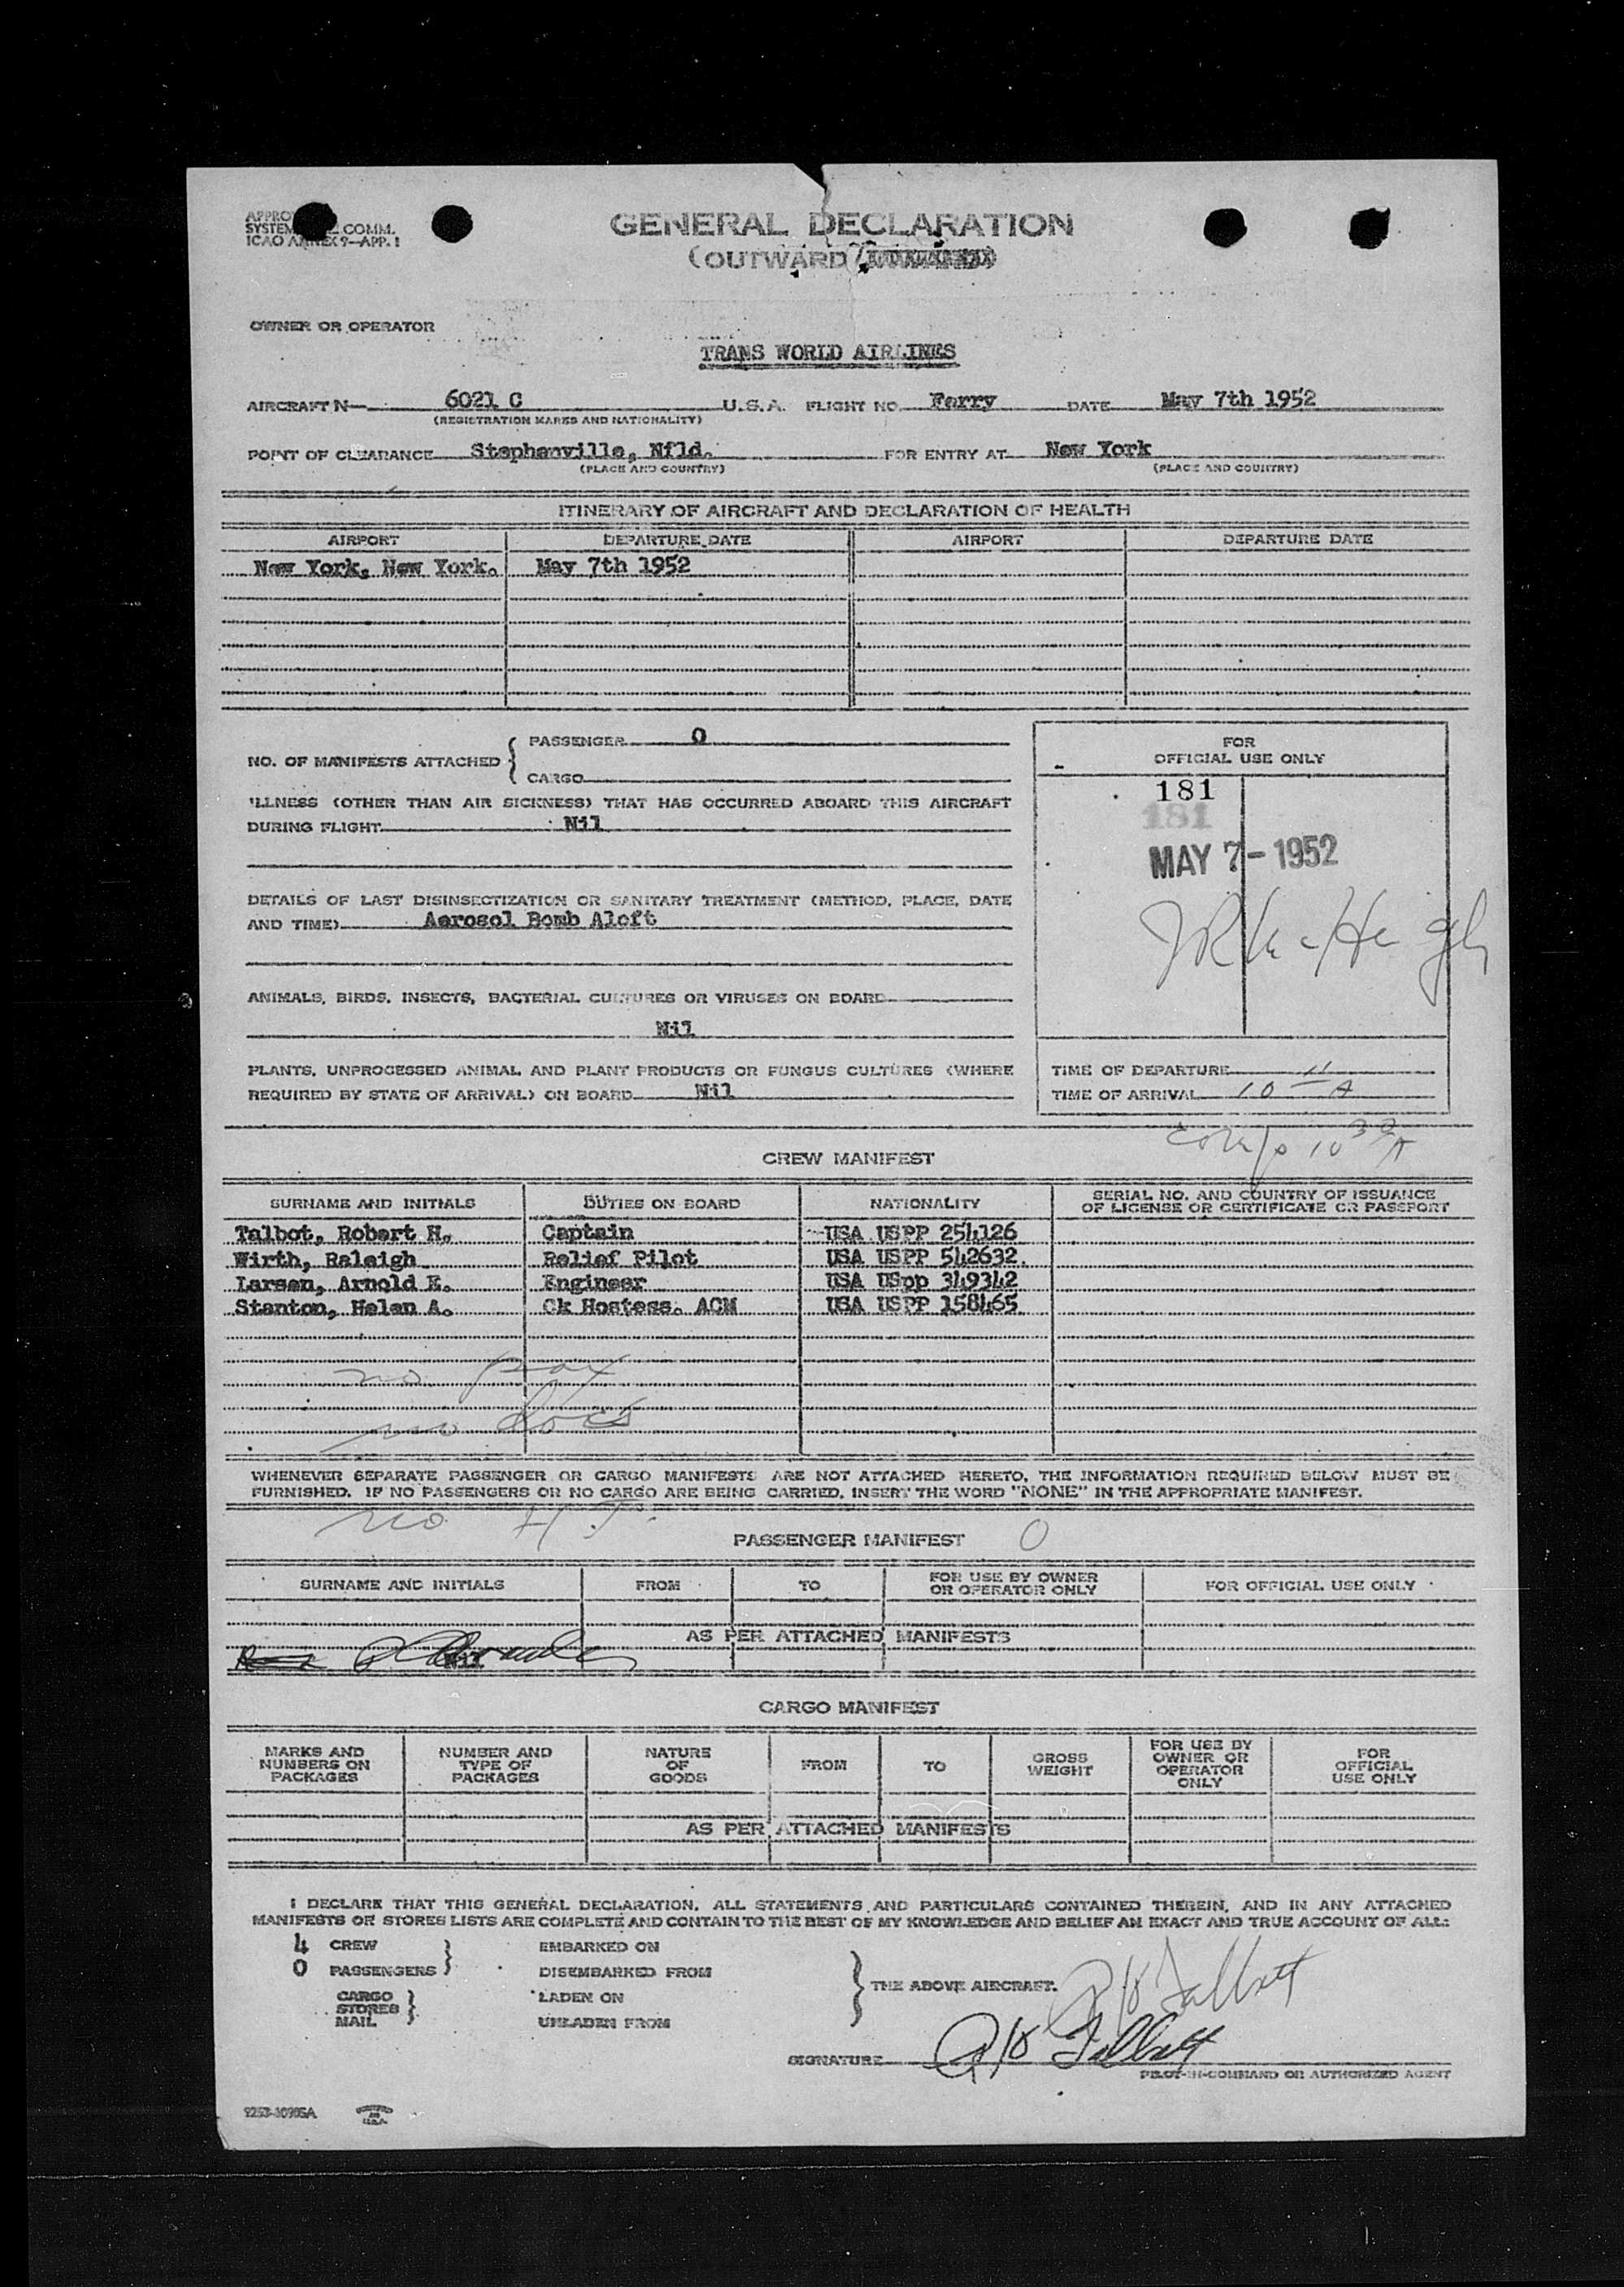 COMM.
ICAO ANNEX 9—APP. 1
GENERAL DECLARATION
(OUTWARD/
OWNER OR OPERATOR
TRANS WORLD AIRLINES
AIRCRAFT N— 6021 C U.S.A. FLIGHT NO. Ferry DATE May 7th 1952
(REGISTRATION MARKS AND NATIONALITY)
POINT OF CLEARANCE Stephenville, Nfld. FOR ENTRY AT New York
(PLACE AND COUNTRY) (PLACE AND COUNTRY)
ITINERARY OF AIRCRAFT AND DECLARATION OF HEALTH
AIRPORT DEPARTURE DATE AIRPORT DEPARTURE DATE
New York, New York. May 7th 1952
NO. OF MANIFESTS ATTACHED { PASSENGER 0
CARGO
ILLNESS (OTHER THAN AIR SICKNESS) THAT HAS OCCURRED ABOARD THIS AIRCRAFT
DURING FLIGHT Nil
DETAILS OF LAST DISINSECTIZATION OR SANITARY TREATMENT (METHOD, PLACE, DATE
AND TIME) Aerosol Bomb Aloft
ANIMALS, BIRDS, INSECTS, BACTERIAL CULTURES OR VIRUSES ON BOARD
Nil
PLANTS, UNPROCESSED ANIMAL AND PLANT PRODUCTS OR FUNGUS CULTURES (WHERE
REQUIRED BY STATE OF ARRIVAL) ON BOARD Nil
FOR
OFFICIAL USE ONLY
181
181
MAY 7 - 1952
TIME OF DEPARTURE
TIME OF ARRIVAL 10 11 A
comp 10 30 A
CREW MANIFEST
SURNAME AND INITIALS DUTIES ON BOARD NATIONALITY SERIAL NO. AND COUNTRY OF ISSUANCE
OF LICENSE OR CERTIFICATE OR PASSPORT
Talbot, Robert H. Captain USA USPP 254126
Wirth, Raleigh Relief Pilot USA USPP 542632.
Larsen, Arnold E. Engineer USA USpp 349342
Stanton, Helen A. Ck Hostess. ACM USA USPP 158465
no pax
no docs
WHENEVER SEPARATE PASSENGER OR CARGO MANIFESTS ARE NOT ATTACHED HERETO, THE INFORMATION REQUIRED BELOW MUST BE
FURNISHED. IF NO PASSENGERS OR NO CARGO ARE BEING CARRIED, INSERT THE WORD "NONE" IN THE APPROPRIATE MANIFEST.
no H.T.
PASSENGER MANIFEST 0
SURNAME AND INITIALS FROM TO FOR USE BY OWNER
OR OPERATOR ONLY FOR OFFICIAL USE ONLY
AS PER ATTACHED MANIFESTS
Nil
CARGO MANIFEST
MARKS AND
NUMBERS ON
PACKAGES
NUMBER AND
TYPE OF
PACKAGES
NATURE
OF
GOODS
FROM
TO
GROSS
WEIGHT
FOR USE BY
OWNER OR
OPERATOR
ONLY
FOR
OFFICIAL
USE ONLY
AS PER ATTACHED MANIFESTS
I DECLARE THAT THIS GENERAL DECLARATION, ALL STATEMENTS AND PARTICULARS CONTAINED THEREIN, AND IN ANY ATTACHED
MANIFESTS OR STORES LISTS ARE COMPLETE AND CONTAIN TO THE BEST OF MY KNOWLEDGE AND BELIEF AN EXACT AND TRUE ACCOUNT OF ALL:
4 CREW } EMBARKED ON
0 PASSENGERS DISEMBARKED FROM } THE ABOVE AIRCRAFT.
CARGO LADEN ON
STORES }
MAIL UNLADEN FROM
RH Talbott
SIGNATURE RH Talbott
PILOT-IN-COMMAND OR AUTHORIZED AGENT
PRINTED
IN
U.S.A.